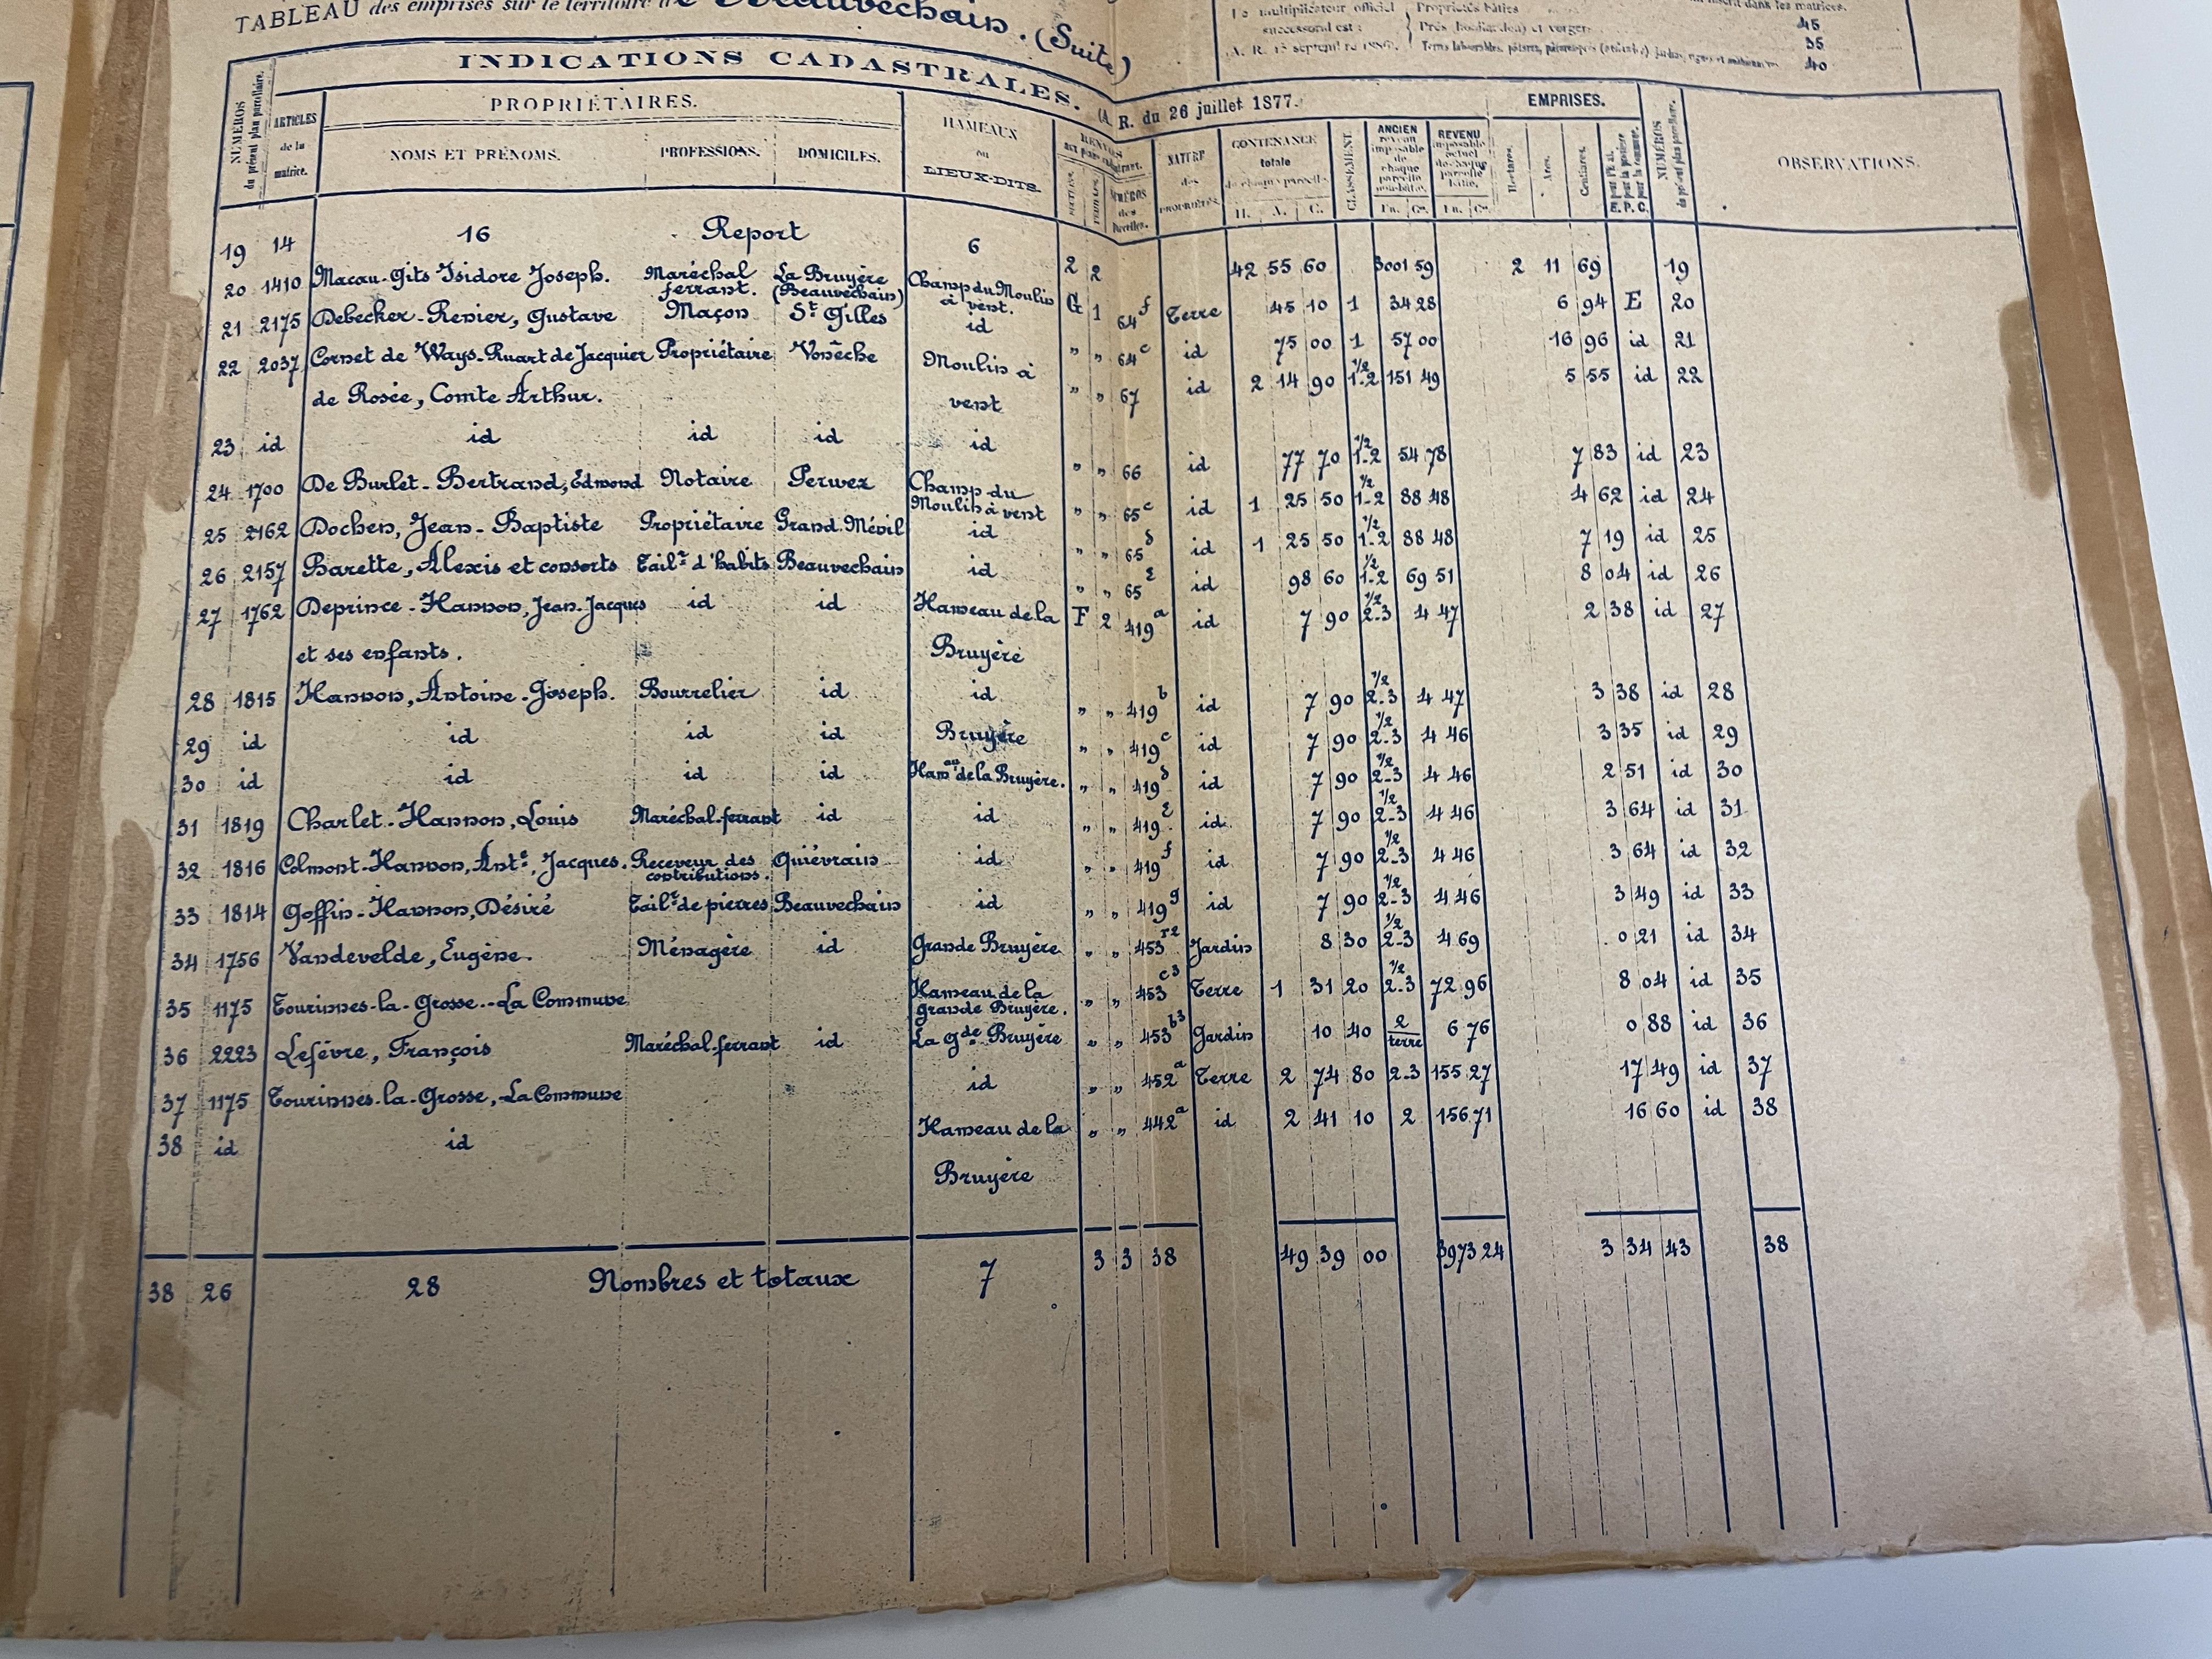 TABLEAU des emprises sur le territoire de Beauvechain. (Suite)
Le multiplicateur officiel
successoral est :
(A. R. 15 septembre 1886)
Propriétés bâties 45
Prés (houblardes) et verger 35
40
inscrit dans les matrices.
INDICATIONS CADASTRALES. (A. R. du 26 juillet 1877.
NUMÉROS du présent plan parcellaire.
ARTICLES de la matrice.
PROPRIÉTAIRES.
NOMS ET PRÉNOMS.
PROFESSIONS.
DOMICILES.
HAMEAUX ou LIEUX-DITS.
RENVOI aux plans cadastraux.
SECTIONS.
FEUILLES.
NUMÉROS des Parcelles.
NATURE des PROPRIÉTÉS
CONTENANCE totale de chaque parcelle
H. A. C.
CLASSEMENT.
ANCIEN revenu imposable de chaque parcelle non-bâtie.
Fr. Cs.
REVENU imposable actuel de chaque parcelle bâtie.
Fr. Cs.
EMPRISES.
Hectares.
Ares.
Centiares.
E. pour l'État. P. pour la province C. pour la commune.
E. P. C.
NUMÉROS du présent plan parcellaire.
OBSERVATIONS.
19 14 16 Report 6 2 2 42 55 60 3001 59 2 11 69 19
20 1410 Macau-Gits Isidore Joseph. Maréchal ferrant. La Bruyère (Beauvechain) Champ du Moulin à vent. G 1 64f Terre 45 10 1 34 28 6 94 E 20
21 2175 Debecker-Renier, Gustave Maçon St Gilles id " " 64c id 75 00 1 57 00 16 96 id 21
22 2037 Cornet de Ways-Ruart de Jacquier Propriétaire Vonêche Moulin à " " 67 id 2 14 90 1-2 1/2 151 49 5 55 id 22
de Rosée, Comte Arthur. vent
23 id id id id id " " 66 id 77 70 1-2 1/2 54 78 7 83 id 23
24 1700 De Burlet-Bertrand, Edmond Notaire Perwez Champ du Moulin à vent " " 65c id 1 25 50 1-2 1/2 88 48 4 62 id 24
25 2162 Dochen, Jean-Baptiste Propriétaire Grand-Mévil id " " 65d id 1 25 50 1-2 1/2 88 48 7 19 id 25
26 2157 Barette, Alexis et consorts Tailr d'habits Beauvechain id " " 65e id 98 60 1-2 1/2 69 51 8 04 id 26
27 1762 Deprince-Hannon, Jean-Jacques id id Hameau de la F 2 419a id 7 90 2-3 1/2 4 47 2 38 id 27
et ses enfants. Bruyère
28 1815 Hannon, Antoine-Joseph. Bourrelier id id " " 419b id 7 90 2-3 1/2 4 47 3 38 id 28
29 id id id id Bruyère " " 419c id 7 90 2-3 1/2 4 46 3 35 id 29
30 id id id id Hamau de la Bruyère. " " 419d id 7 90 2-3 1/2 4 46 2 51 id 30
31 1819 Charlet-Hannon, Louis Maréchal-ferrant id id " " 419e id. 7 90 2-3 1/2 4 46 3 64 id 31
32 1816 Colmont-Hannon, Ante, Jacques. Receveur des contributions. Quiévrain id " " 419f id 7 90 2-3 1/2 4 46 3 64 id 32
33 1814 Goffin-Hannon, Désiré Tailr de pierres Beauvechain id " " 419g id 7 90 2-3 1/2 4 46 3 49 id 33
34 1756 Vandevelde, Eugène. Ménagère id Grande Bruyère " " 453r2 Jardin 8 30 2-3 1/2 4 69 0 21 id 34
35 1175 Tourinnes-la-Grosse--La Commune Hameau de la grande Bruyère. " " 453c3 Terre 1 31 20 2-3 1/2 72 96 8 04 id 35
36 2223 Lefèvre, François Maréchal-ferrant id La gde Bruyère " " 453b3 Jardin 10 40 2 terre 6 76 0 88 id 36
37 1175 Tourinnes-la-Grosse, La Commune id " " 452a Terre 2 74 80 2-3 155 27 17 49 id 37
38 id id Hameau de la " " 442a id 2 41 10 2 156 71 16 60 id 38
Bruyère
38 26 28 Nombres et totaux 7 3 3 38 49 39 00 3973 24 3 34 43 38